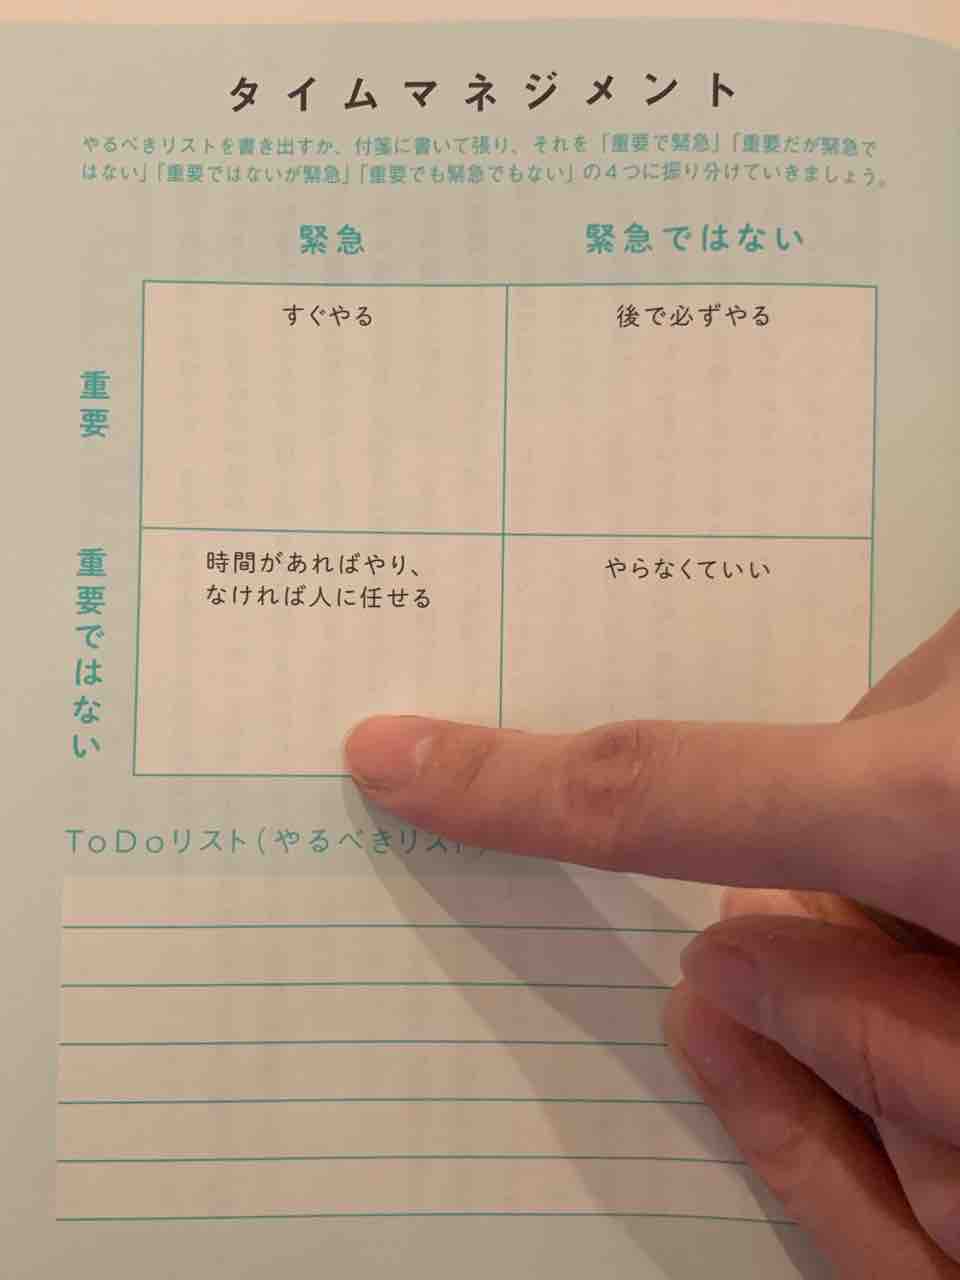 タイムマネジメント
やるべきリストを書き出すか、付箋に書いて張り、それを「重要で緊急」「重要だが緊急で
はない」「重要ではないが緊急」「重要でも緊急でもない」の4つに振り分けていきましょう。
緊急
緊急ではない
重要
すぐやる
後で必ずやる
重要ではない
時間があればやり、
なければ人に任せる
やらなくていい
ToDoリスト(やるべきリスト)